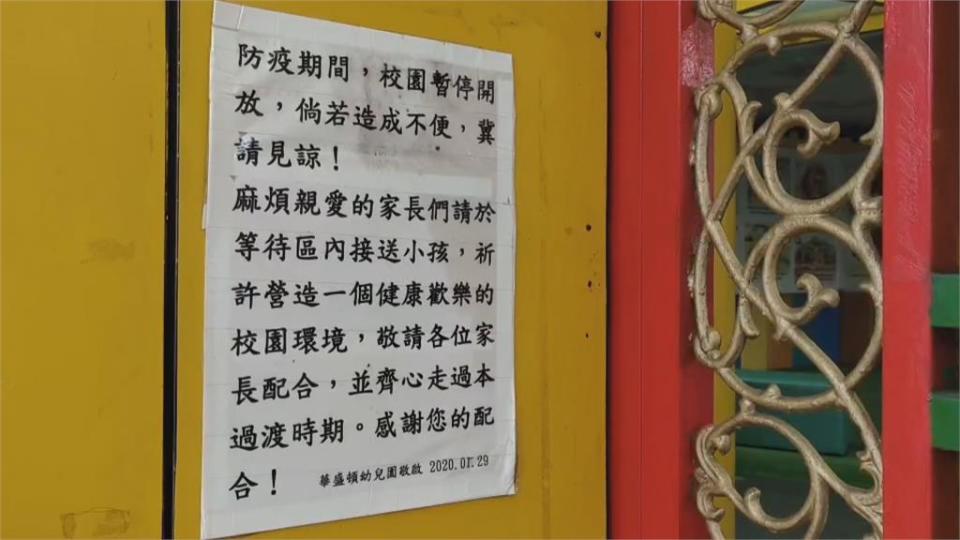 防疫期間，校園暫停開
放，倘若造成不便，冀
請見諒！
麻煩親愛的家長們請於
等待區內接送小孩，祈
許營造一個健康歡樂的
校園環境，敬請各位家
長配合，並齊心走過本
過渡時期。感謝您的配
合！
華盛頓幼兒園敬啟 2020.01.29